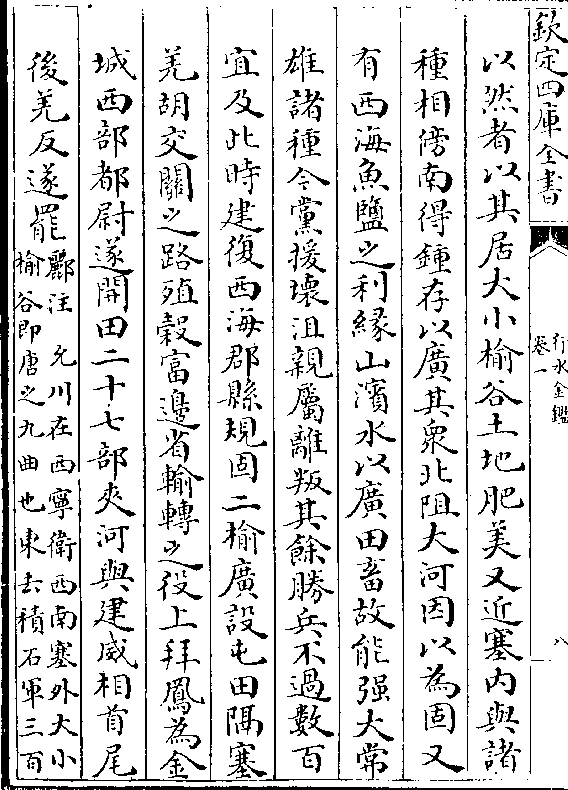 欽定四庫全書
行水金鑑
卷一
八
以然者以其居大小榆谷土地肥美又近塞内與諸
種相傍南得鍾存以廣其衆北阻大河因以為固又
有西海魚鹽之利緣山濱水以廣田畜故能强大常
雄諸種今黨援壞沮親屬離叛其餘勝兵不過數百
宜及此時建復西海郡縣規固二榆廣設屯田隔塞
羌胡交關之路殖穀富邊省輸轉之役上拜鳳為金
城西部都尉遂開田二十七部夾河與建威相首尾
後羌反遂罷
酈注 允川在西寧衛西南塞外大小
榆谷即唐之九曲也東去積石軍三百